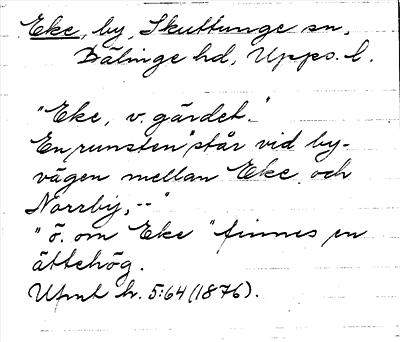 Eke, by, Skuttunge sn,
Bälinge hd, Upps. l.
"Eke, v. gärdet."
En runsten "står vid by-
vägen mellan Eke och
Norrby, --"
"ö. om Eke" finnes en
ättehög.
Ufmt h. 5:64 (1876).